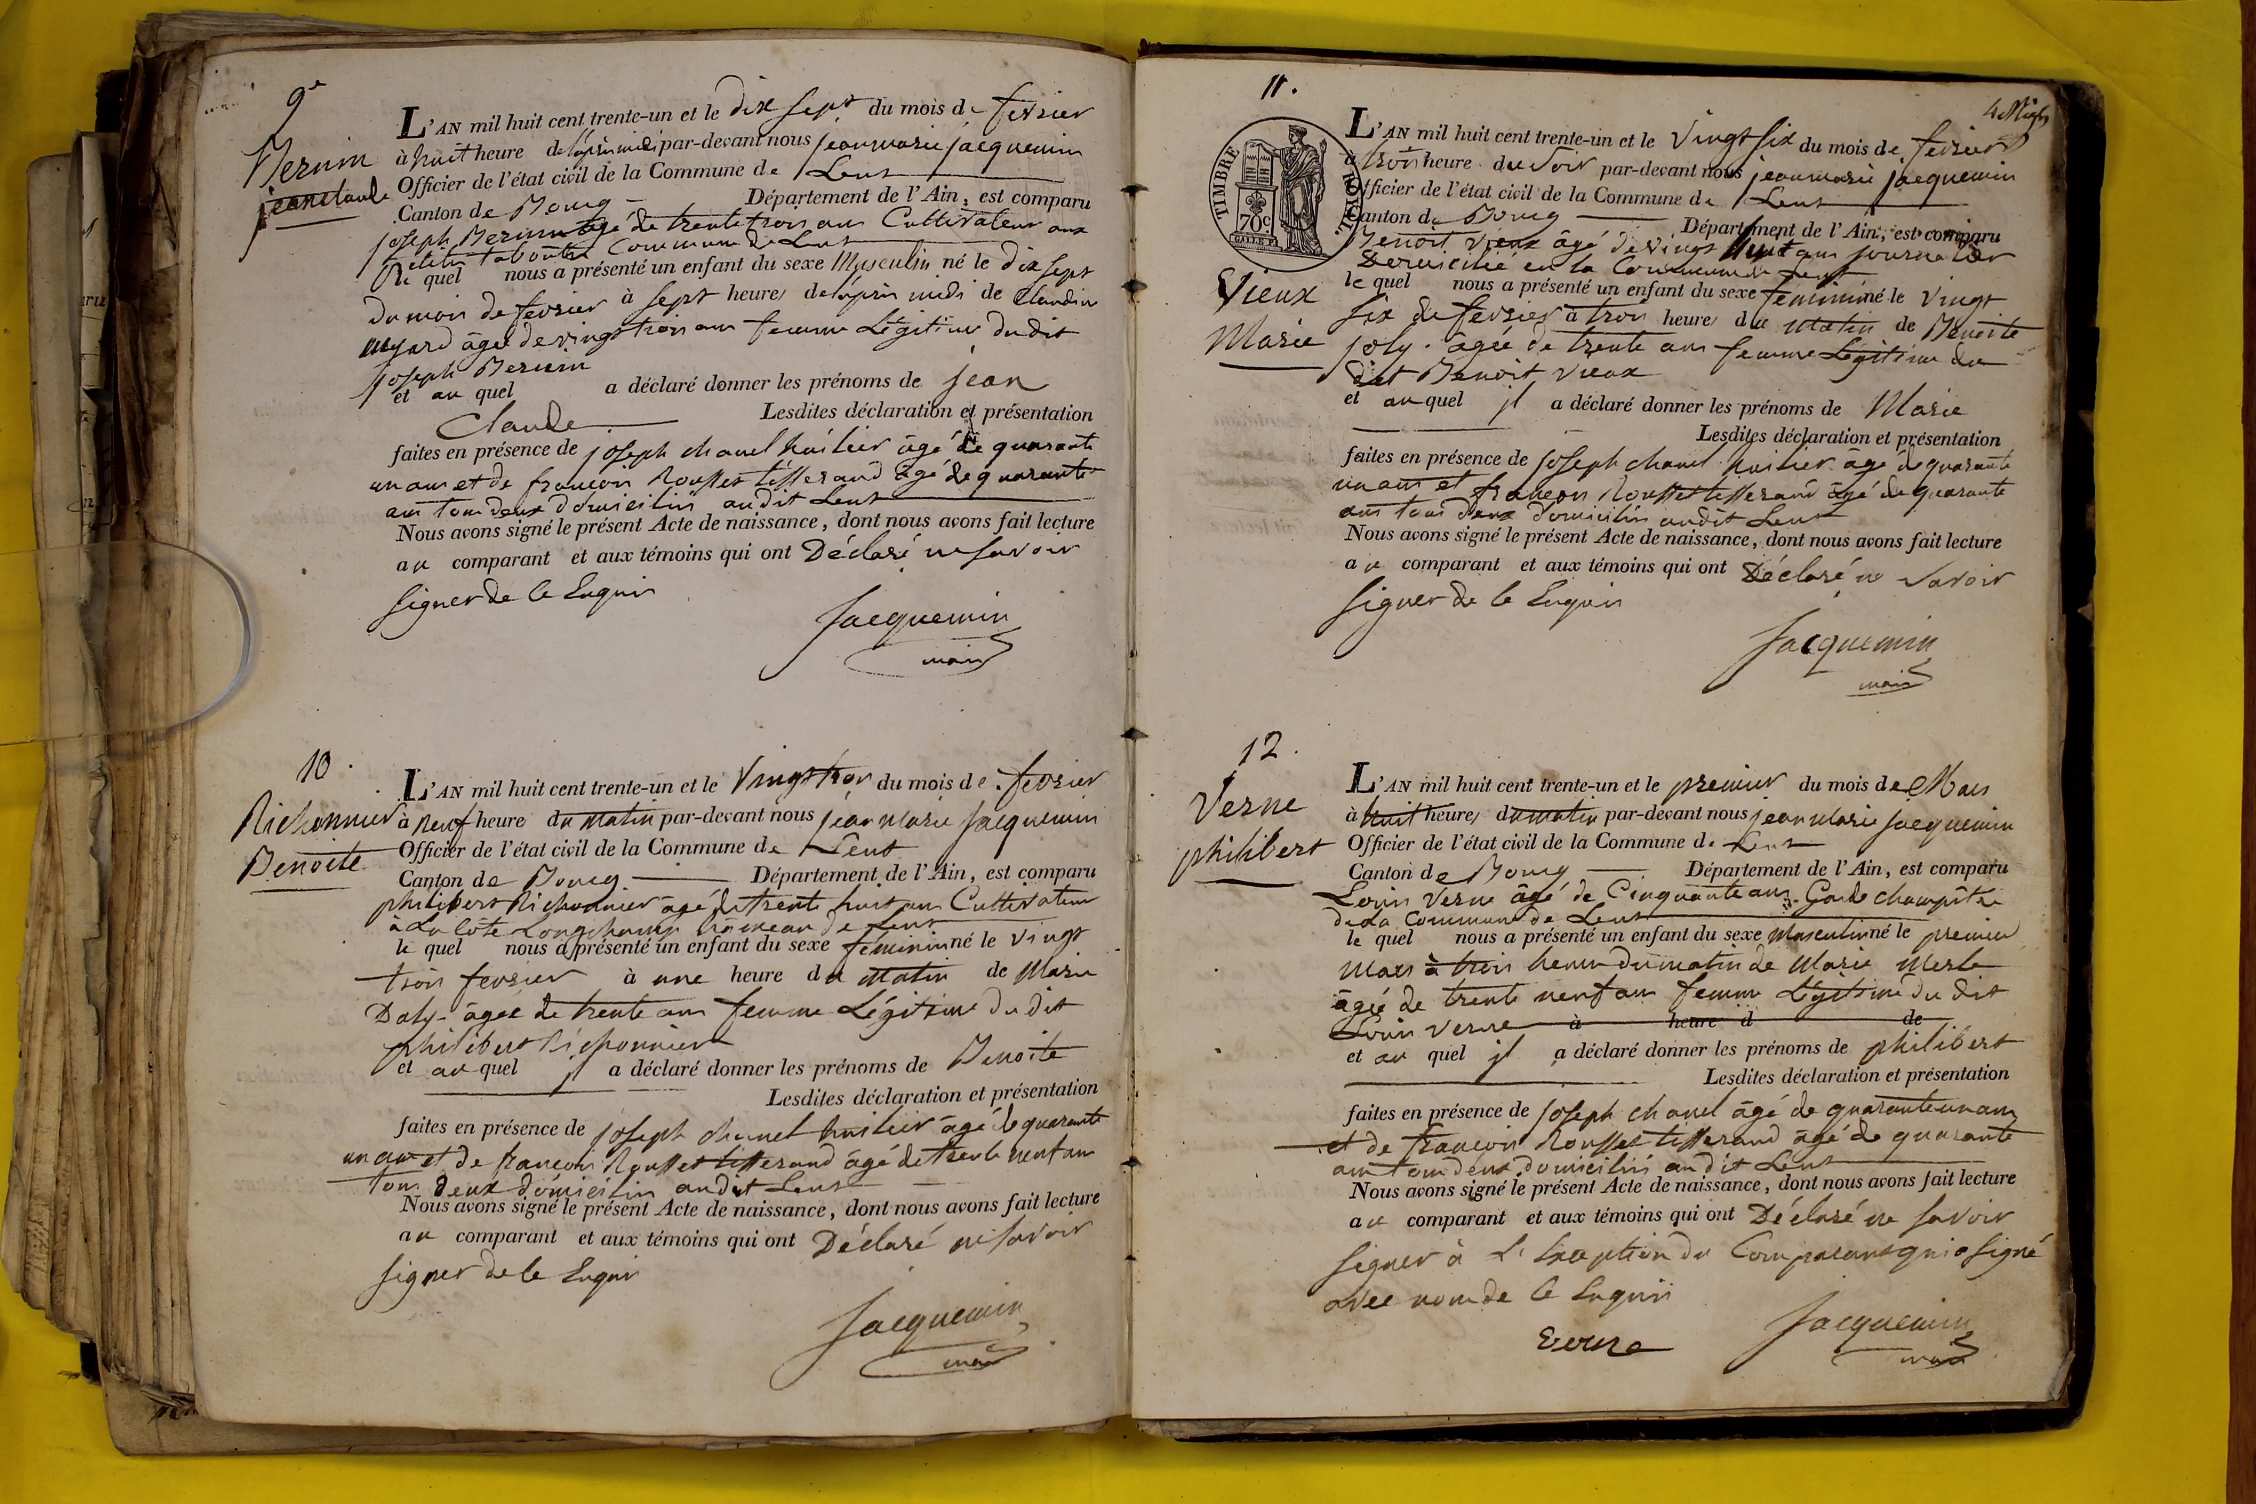 9e
Bernin
jean claude
L'AN mil huit cent trente-un et le dix sept du mois de fevrier
à huit heure de l'aprés midi par-devant nous jean marie jacquemin
Officier de l'état civil de la Commune de Lent
Canton de Bourg Département de l'Ain, est comparu
joseph Bernin âgé de trente trois ans Cultivateur aux
Commune de Lent
le quel nous a présenté un enfant du sexe Masculin né le dix sept
du mois de fevrier à sept heures de l'aprés midi de Claudine
âgée de vingt trois ans femme Légitime du dit
joseph Bernin
et au quel a déclaré donner les prénoms de jean
Claude Lesdites déclaration et présentation
faites en présence de joseph chanel huilier âgé de quarante
un ans et de françois Rousset tisserand âgé de quarante
ans tous deux domiciliés au dit Lent
Nous avons signé le présent Acte de naissance, dont nous avons fait lecture
au comparant et aux témoins qui ont Déclaré ne savoir
signer de ce Enquis
Jacquemin
maire
10.
Richonnier
Benoite
L'AN mil huit cent trente-un et le Vingt trois du mois de fevrier
à neuf heure du matin par-devant nous jean marie jacquemin
Officier de l'état civil de la Commune de Lent
Canton de Bourg Département de l'Ain, est comparu
philibert Richonnier âgé de trente huit ans Cultivateur
à La Côte Longchamp hameau de Lent
le quel nous a présenté un enfant du sexe feminin né le vingt
trois fevrier à une heure du matin de Marie
Daly âgée de trente ans femme Légitime du dit
philibert Richonnier
et au quel il a déclaré donner les prénoms de Benoite
Lesdites déclaration et présentation
faites en présence de joseph chanel huilier âgé de quarante
un ans et de françois Rousset tisserand âgé de trente neuf ans
tous deux domiciliés au dit Lent
Nous avons signé le présent Acte de naissance, dont nous avons fait lecture
au comparant et aux témoins qui ont Déclaré ne savoir
signer de ce Enquis
Jacquemin
maire
11.
TIMBRE ROYAL
70c
Vieux
Marie
L'AN mil huit cent trente-un et le Vingt six du mois de fevrier
à trois heure du soir par-devant nous jean marie jacquemin
Officier de l'état civil de la Commune de Lent
Canton de Bourg Département de l'Ain, est comparu
Benoit Vieux âgé de vingt huit ans journalier
Domicilié en la Commune de Lent
le quel nous a présenté un enfant du sexe feminin né le Vingt
six de fevrier à trois heures du matin de Benoite
joly âgée de trente ans femme Légitime du
dit Benoit Vieux
et au quel il a déclaré donner les prénoms de Marie
Lesdites déclaration et présentation
faites en présence de joseph chanel huilier âgé de quarante
un ans et françois Rousset tisserand âgé de quarante
ans tous deux domiciliés au dit Lent
Nous avons signé le présent Acte de naissance, dont nous avons fait lecture
au comparant et aux témoins qui ont Déclaré ne savoir
signer de ce Enquis
Jacquemin
maire
12.
Verne
philibert
L'AN mil huit cent trente-un et le premier du mois de Mars
à huit heures du matin par-devant nous jean marie jacquemin
Officier de l'état civil de la Commune de Lent
Canton de Bourg Département de l'Ain, est comparu
Louis Verne âgé de Cinquante ans Garde champêtre
de La Commune de Lent
le quel nous a présenté un enfant du sexe Masculin né le premier
Mars à trois heures du matin de Marie Merle
âgée de trente neuf ans femme Légitime du dit
Louis Verne à heure d de
et au quel il a déclaré donner les prénoms de philibert
Lesdites déclaration et présentation
faites en présence de joseph chanel âgé de quarante un ans
et de françois Rousset tisserand âgé de quarante
ans tous deux domiciliés au dit Lent
Nous avons signé le présent Acte de naissance, dont nous avons fait lecture
au comparant et aux témoins qui ont Déclaré ne savoir
signer à L'Exception du Comparant qui a signé
avec nous de ce Enquis
Verne
Jacquemin
maire